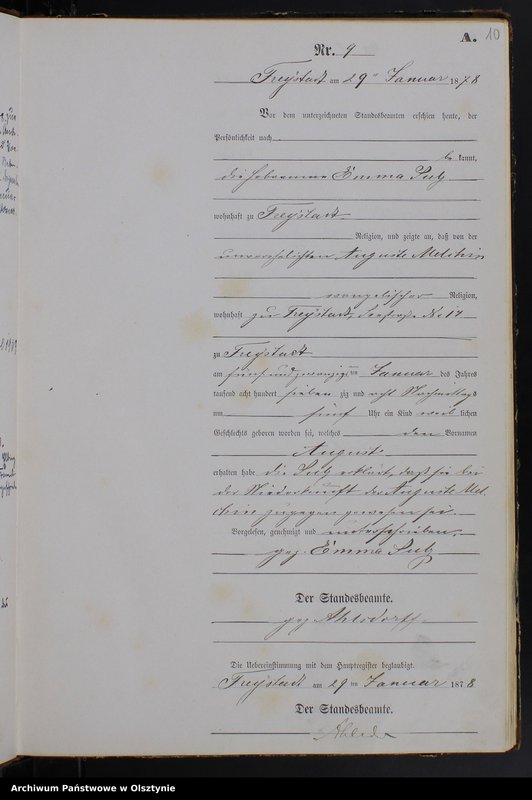 A. 10
Nr. 9
Freystadt am 29 Januar 1878
Vor dem unterzeichneten Standesbeamten erschien heute, der
Persönlichkeit nach
be kannt,
die Hebeamme Emma
wohnhaft zu Freystadt
Religion, und zeigte an, daß von der
unverehelichten Auguste Melchin
evangelischer Religion,
wohnhaft zu Freystadt, No 14
zu Freystadt
am fünf und zwanzigsten Januar des Jahres
tausend acht hundert sieben zig und acht Nachmittags
um fünf Uhr ein Kind weib lichen
Geschlechts geboren worden sei, welches den Vornamen
August
erhalten habe die erklärt, daß sie bei
der Niederkunft der Auguste Mel-
chin zugegen gewesen sei.
Vorgelesen, genehmigt und unterschrieben.
gez. Emma
Der Standesbeamte.
gez. Ahlsdorff
Die Uebereinstimmung mit dem Hauptregister beglaubigt.
Freystadt am 29 ten Januar 1878
Der Standesbeamte.
Archiwum Państwowe w Olsztynie